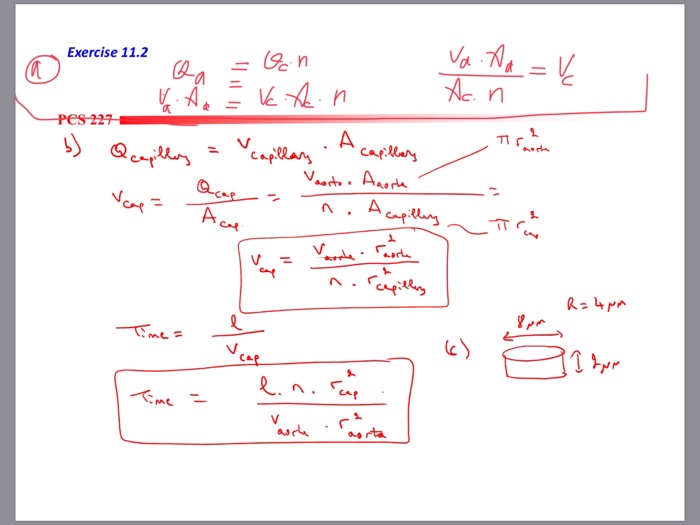 Exercise 11.2
(a) Qa = Qc·n
Va·Aa = Vc·Ac·n
Va·Aa / Ac·n = Vc
PCS 227
b) Qcapillary = Vcapillary · Acapillary
π r²aorta
Vcap = Qcap / Acap = Vaorta · Aaorta / n · Acapillary =
π r²cap
Vcap = Vaorta · r²aorta / n · r²capillary
Time = l / Vcap
(c) 8μm R = 4μm
2μm
Time = l · n · r²cap / Vaorta · r²aorta